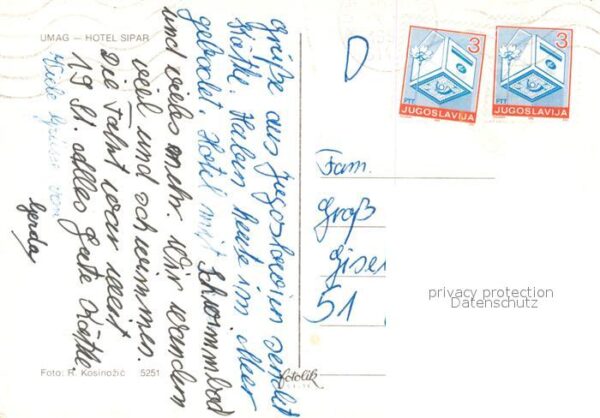 UMAG — HOTEL SIPAR
Grüße aus Jugoslawien sendet
Käthe. Haben heute im Meer
gebadet. Hotel mit Schwimmbad
und vieles mehr. Wir wandern
viel und schwimmen.
Die Fahrt war weit
19 St. alles gute Käthe.
Viele Grüsse von
Gerda
Foto: R. Kosinožić 5251
fotolik
D
3
PTT
JUGOSLAVIJA
3
PTT
JUGOSLAVIJA
Fam.
Groß
Gisel
51
privacy protection
Datenschutz